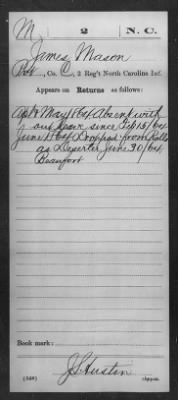 M 2 N.C.
James Mason
Pvt, Co. C, 2 Reg't North Carolina Inf.
Appears on Returns as follows:
Apl & May 1864 Absent with
out leave since Feb 15/64
June 1864 Dropped from Rolls
as Deserter June 30/64
Beaufort
Book mark:
J S Hustin
(546) Copyist.